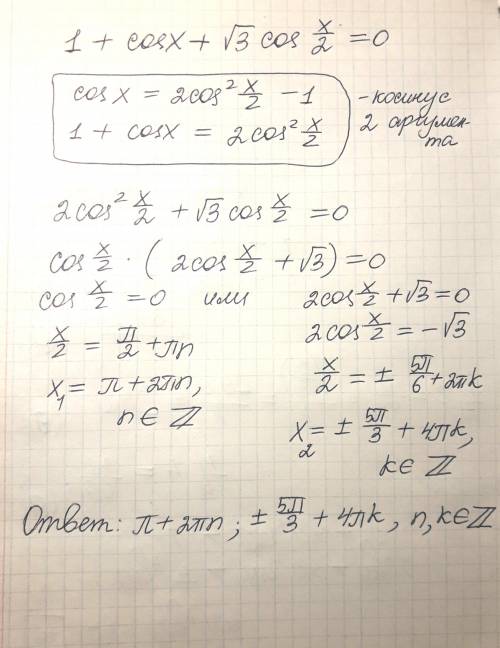 1 + cosx + √3 cos x/2 = 0
cos x = 2cos² x/2 - 1
1 + cosx = 2cos² x/2
- косинус
2 аргумен-
та
2cos² x/2 + √3 cos x/2 = 0
cos x/2 · ( 2cos x/2 + √3) = 0
cos x/2 = 0 или 2cos x/2 + √3 = 0
2cos x/2 = -√3
x/2 = π/2 + πn
x/2 = ± 5π/6 + 2πk
x₁ = π + 2πn,
n ∈ ℤ
x₂ = ± 5π/3 + 4πk,
k ∈ ℤ
Ответ: π + 2πn ; ± 5π/3 + 4πk, n, k ∈ ℤ